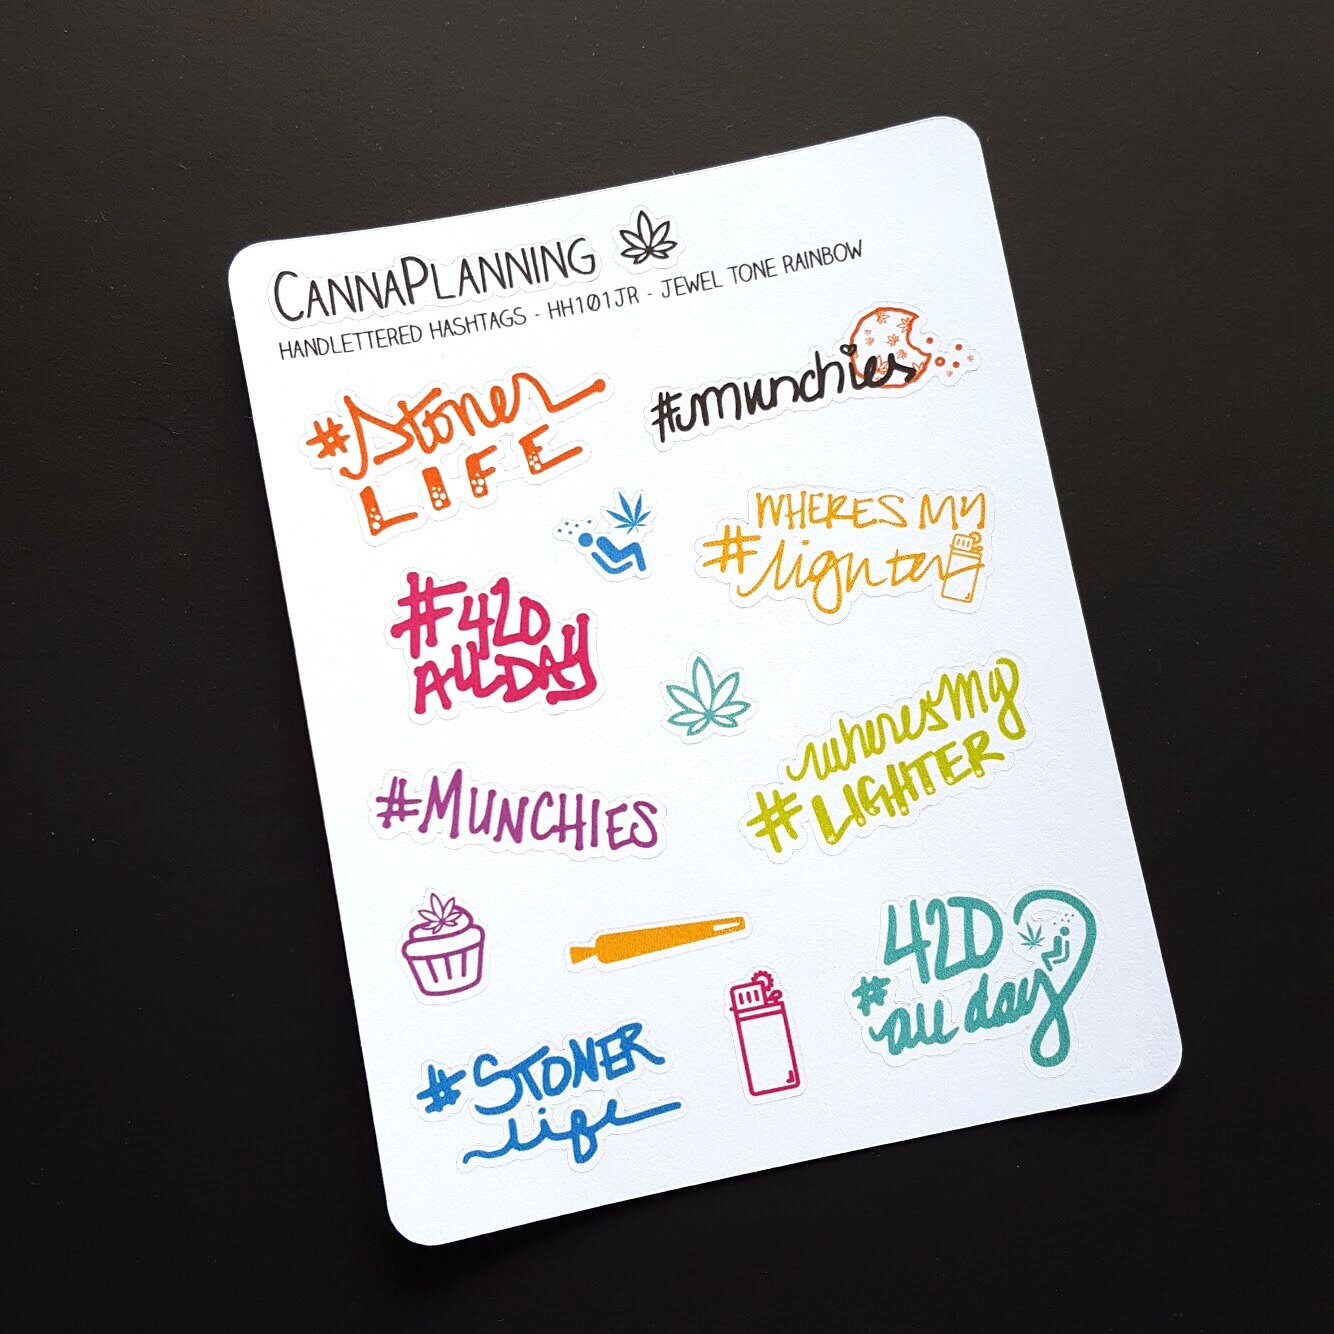 CANNAPLANNING
HANDLETTERED HASHTAGS - HH101JR - JEWEL TONE RAINBOW
#Stoner
LIFE
#munchies
WHERES MY
#lighter
#420
ALL DAY
wheres my
#LIGHTER
#MUNCHIES
420
#all day
#STONER
life